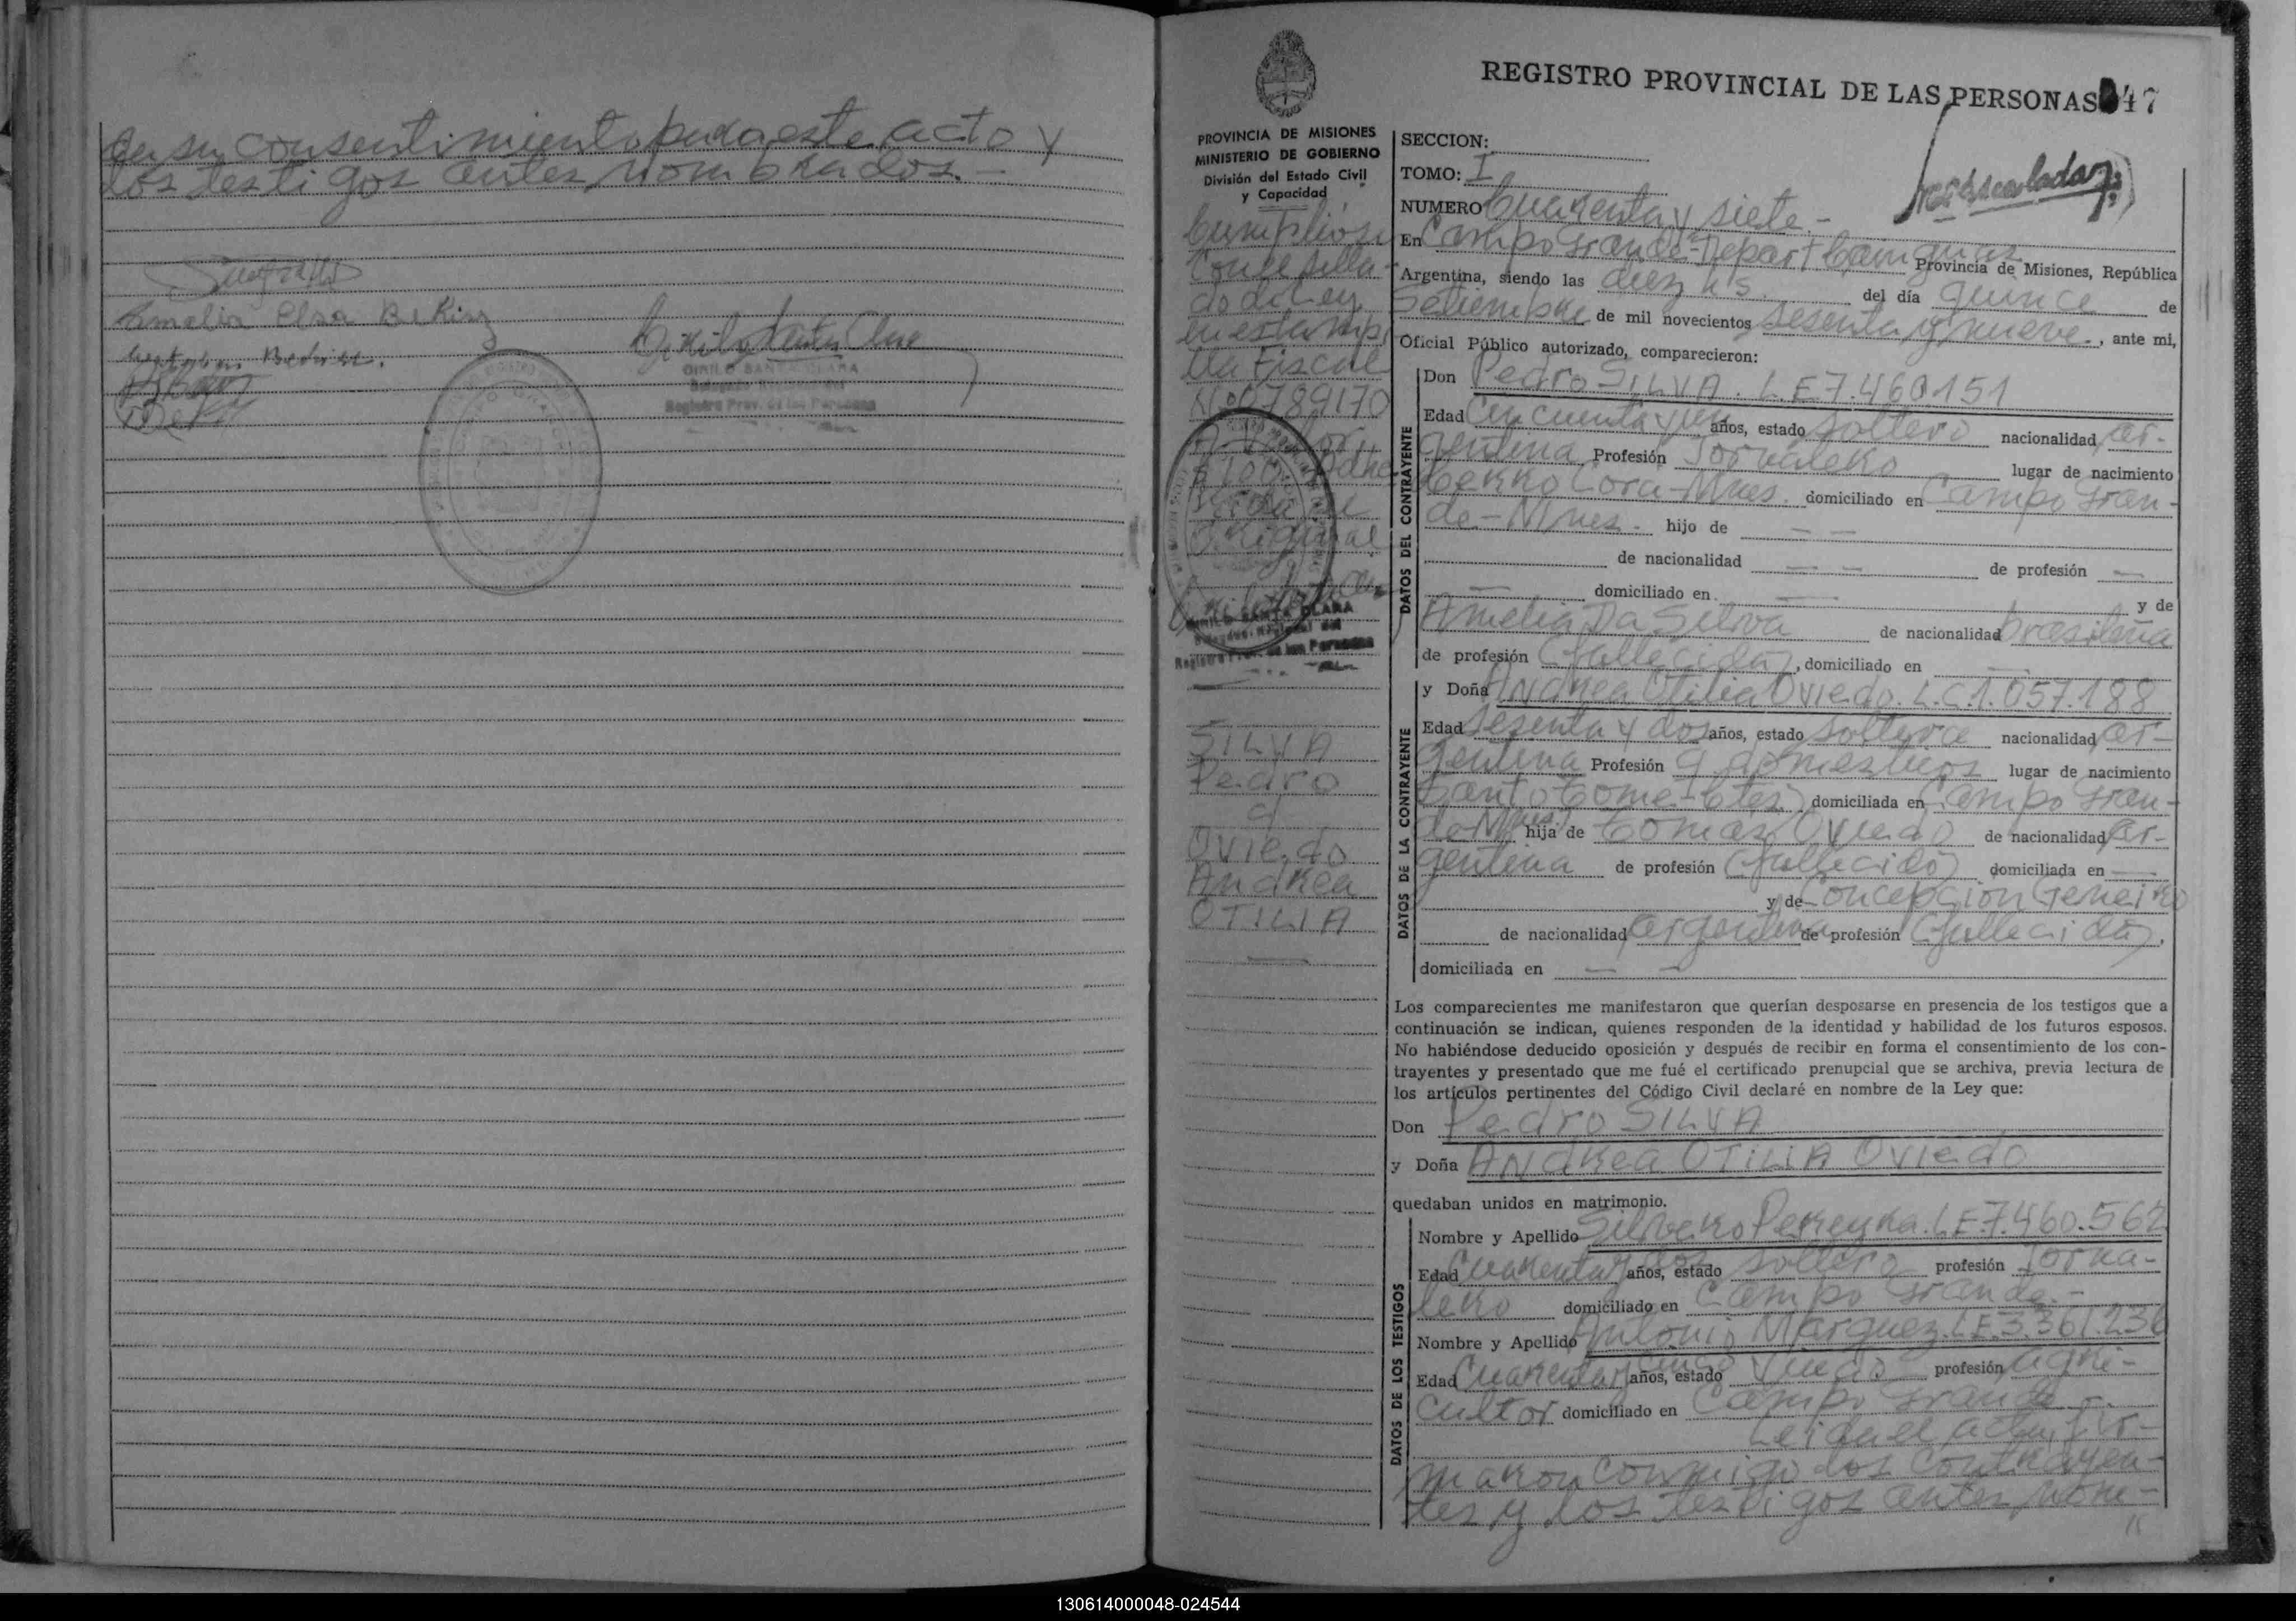 da su consentimiento para este acto y
los testigos antes nombrados.-
Amelia Elsa Beking
CIRILO SANTA CLARA
Registro Prov. de las Personas
REGISTRO PROVINCIAL DE LAS PERSONAS 47
PROVINCIA DE MISIONES
MINISTERIO DE GOBIERNO
División del Estado Civil
y Capacidad
Cumpliose
con el sella-
do de Ley
en estampi
lla Fiscal
Nº 0789170
original
CIRILO SANTA CLARA
Registro Prov. de las Personas
SILVA
Pedro
q
Oviedo
Andrea
OTILIA
SECCION:
TOMO: I
NUMERO Cuarenta y siete.-
En Campo Grande-Depart Cainguas Provincia de Misiones, República
Argentina, siendo las diez hs. del día quince de
Setiembre de mil novecientos sesenta y nueve, ante mi,
Oficial Público autorizado, comparecieron:
DATOS DEL CONTRAYENTE
Don Pedro SILVA. L.E 7.460.151
Edad Cincuenta y un años, estado soltero nacionalidad ar-
gentina Profesión Jornalero lugar de nacimiento
Cerro Corá-Mnes. domiciliado en Campo Gran-
de-Mnes. hijo de — —
de nacionalidad — — de profesión —
— domiciliado en — y de
Amelia Da Silva de nacionalidad brasileña
de profesión (fallecida), domiciliado en —
DATOS DE LA CONTRAYENTE
y Doña Andrea Otilia Oviedo. L.C.1.057.188
Edad Sesenta y dos años, estado soltera nacionalidad ar-
gentina Profesión q. domesticos lugar de nacimiento
Santo Tomé-Ctes) domiciliada en Campo Gran-
de-Mnes) hija de Tomás Oviedo de nacionalidad ar-
gentina de profesión (fallecido) domiciliada en —
y de Concepción Geneiro
de nacionalidad argentina de profesión (fallecida),
domiciliada en — —
Los comparecientes me manifestaron que querían desposarse en presencia de los testigos que a
continuación se indican, quienes responden de la identidad y habilidad de los futuros esposos.
No habiéndose deducido oposición y después de recibir en forma el consentimiento de los con-
trayentes y presentado que me fué el certificado prenupcial que se archiva, previa lectura de
los artículos pertinentes del Código Civil declaré en nombre de la Ley que:
Don Pedro SILVA
y Doña ANDREA OTILIA Oviedo
quedaban unidos en matrimonio.
DATOS DE LOS TESTIGOS
Nombre y Apellido Silverio Pereyra. L.E.7.460.562
Edad Cuarenta y dos años, estado soltero profesión Jorna-
lero domiciliado en Campo Grande.-
Nombre y Apellido Antonio Marquez. L.E.3.361.236
Edad Cuarenta y cinco años, estado viudo profesión agri-
cultor domiciliado en Campo Grande.-
Leida el acta, fir-
maron conmigo los contrayen-
tes y los testigos antes nom-